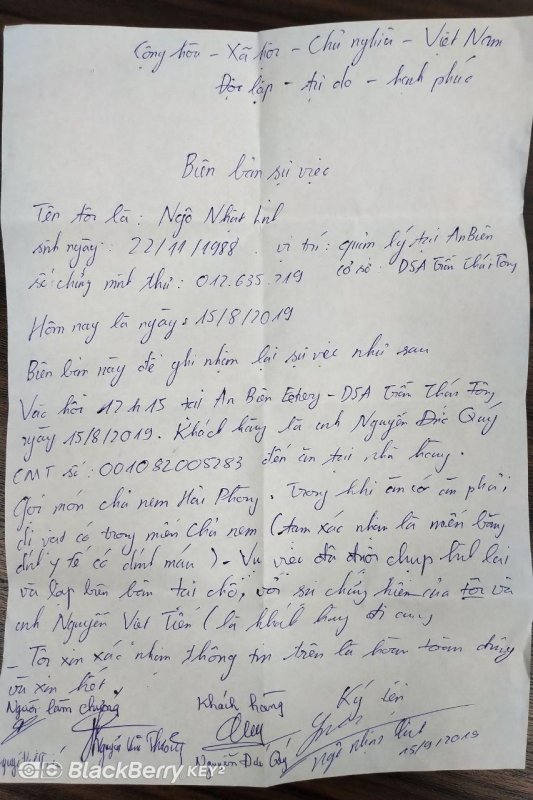 Cộng hòa - Xã hội - Chủ nghĩa - Việt Nam
Độc lập - tự do - hạnh phúc
Biên bản sự việc
Tên tôi là: Ngô Nhật Linh
sinh ngày: 22/11/1988. vị trí: quản lý tại An Biên
số chứng minh thư: 012.635.719 cơ sở: DSA Trần Thái Tông
Hôm nay là ngày: 15/8/2019
Biên bản này để ghi nhận lại sự việc như sau
Vào hồi 12h15 tại An Biên Eatery - DSA Trần Thái Tông
ngày 15/8/2019. Khách hàng là anh Nguyễn Đức Quý
CMT số: 001082005283 đến ăn tại nhà hàng.
Gọi món chả nem Hải Phòng. Trong khi ăn có ăn phải
dị vật có trong miến chả nem (tạm xác nhận là miến băng
dính y tế có dính máu) - Vụ việc đã được chụp hình lại
và lập biên bản tại chỗ, với sự chứng kiến của tôi và
anh Nguyễn Việt Tiến (là khách hàng đi cùng
- Tôi xin xác nhận thông tin trên là hoàn toàn đúng
và xin hết.
Người làm chứng Khách hàng Ký tên
Nguyễn Đức Quý Ngô Nhật Linh
15/9/2019
BlackBerry KEY2